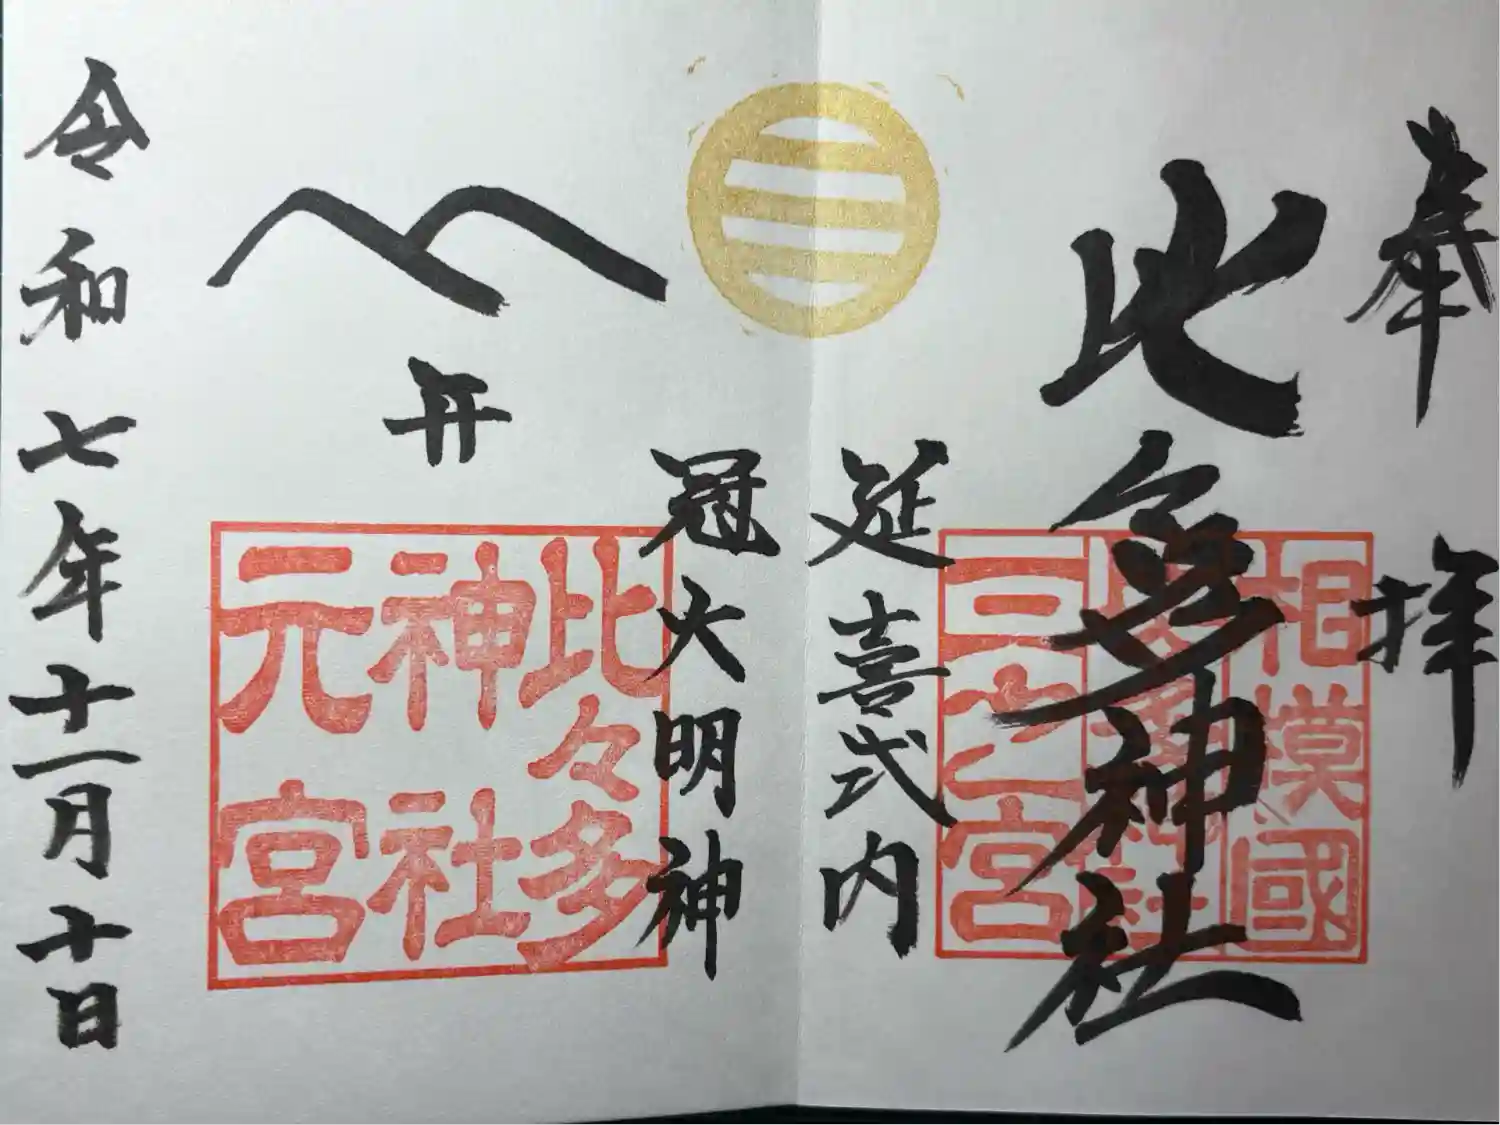 奉拝
比々多神社
相模國
比々多神社
三之宮
延喜式内
冠大明神
比々多
神社
元宮
令和七年十一月十日